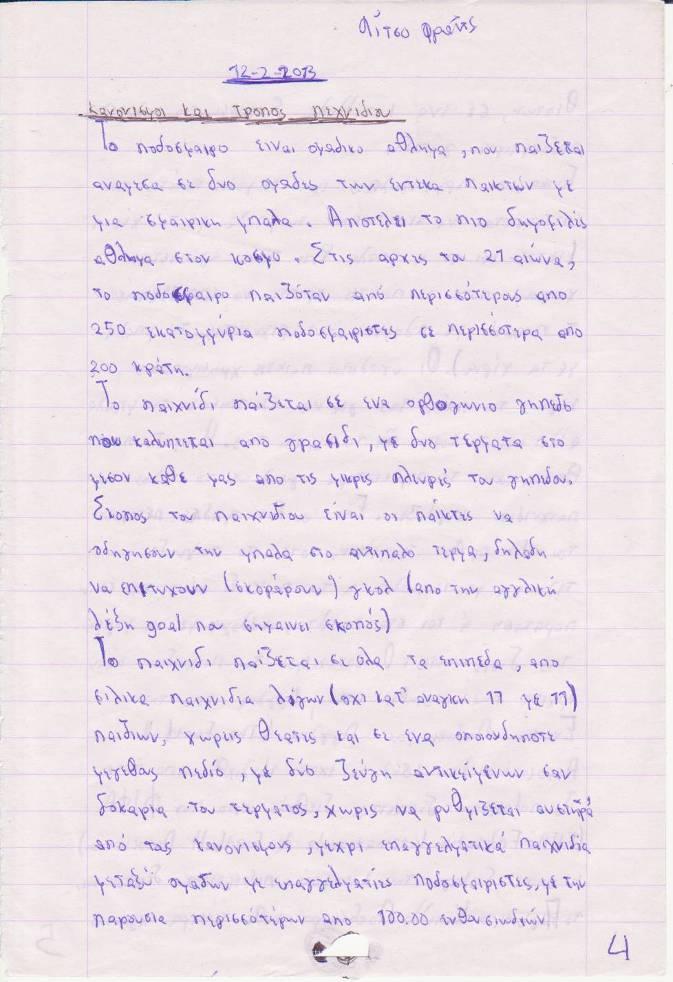 Λίτσο Φραντς
12-2-2013
Κανονισμοι και Τροπος πεχνιδιου
Το ποδοσφαιρο ειναι ομαδικο αθλημα, που παιζεται
αναμεσα σε δυο ομαδες των εντεκα παικτών με
μια σφαιρικη μπαλα. Αποτελει το πιο δημοφιλές
αθλημα στον κοσμο. Στις αρχες του 21 αιώνα,
το ποδοσφαιρο παιζόταν από περισσότερους απο
250 εκατομμύρια ποδοσφαιριστες σε περισσότερα απο
200 κράτη.
Το παιχνιδι παίζεται σε ενα ορθογηνιο γηπεδο
που καλυπτεται απο γρασιδι, με δυο τερματα στο
μεσον καθε μας απο τις μικρις πλευρές του γηπεδου.
Σκοπος του παιχνιδιου είναι οι παίκτες να
οδηγησουν την μπαλα στο αντιπαλο τερμα, δηλαδη
να επιτυχουν (σκοράρουν) γκολ (απο την αγγλική
λέξη goal που σημαινει σκοπός)
Το παιχνιδι παίζεται σε ολα τα επιπεδα, απο
φιλικα παιχνιδια λόγων (οχι κατ' αναγκη 11 με 11)
παιδιων, χωρεις θεατες και σε ενα οποιονδηποτε
μεγεθος πεδίο, με δύο ζεύγη αντικείμενων σαν
δοκαρια του τερματος, χωρις να ρυθμιζεται αυστηρά
από τους κανονισμους, μεχρι επαγγελματικά παιχνιδια
μεταξύ ομαδων με επαγγελματίες ποδοσφαιριστες, με την
παρουσια περισσοτέρων απο 100.00 ενθουσιωδών
4